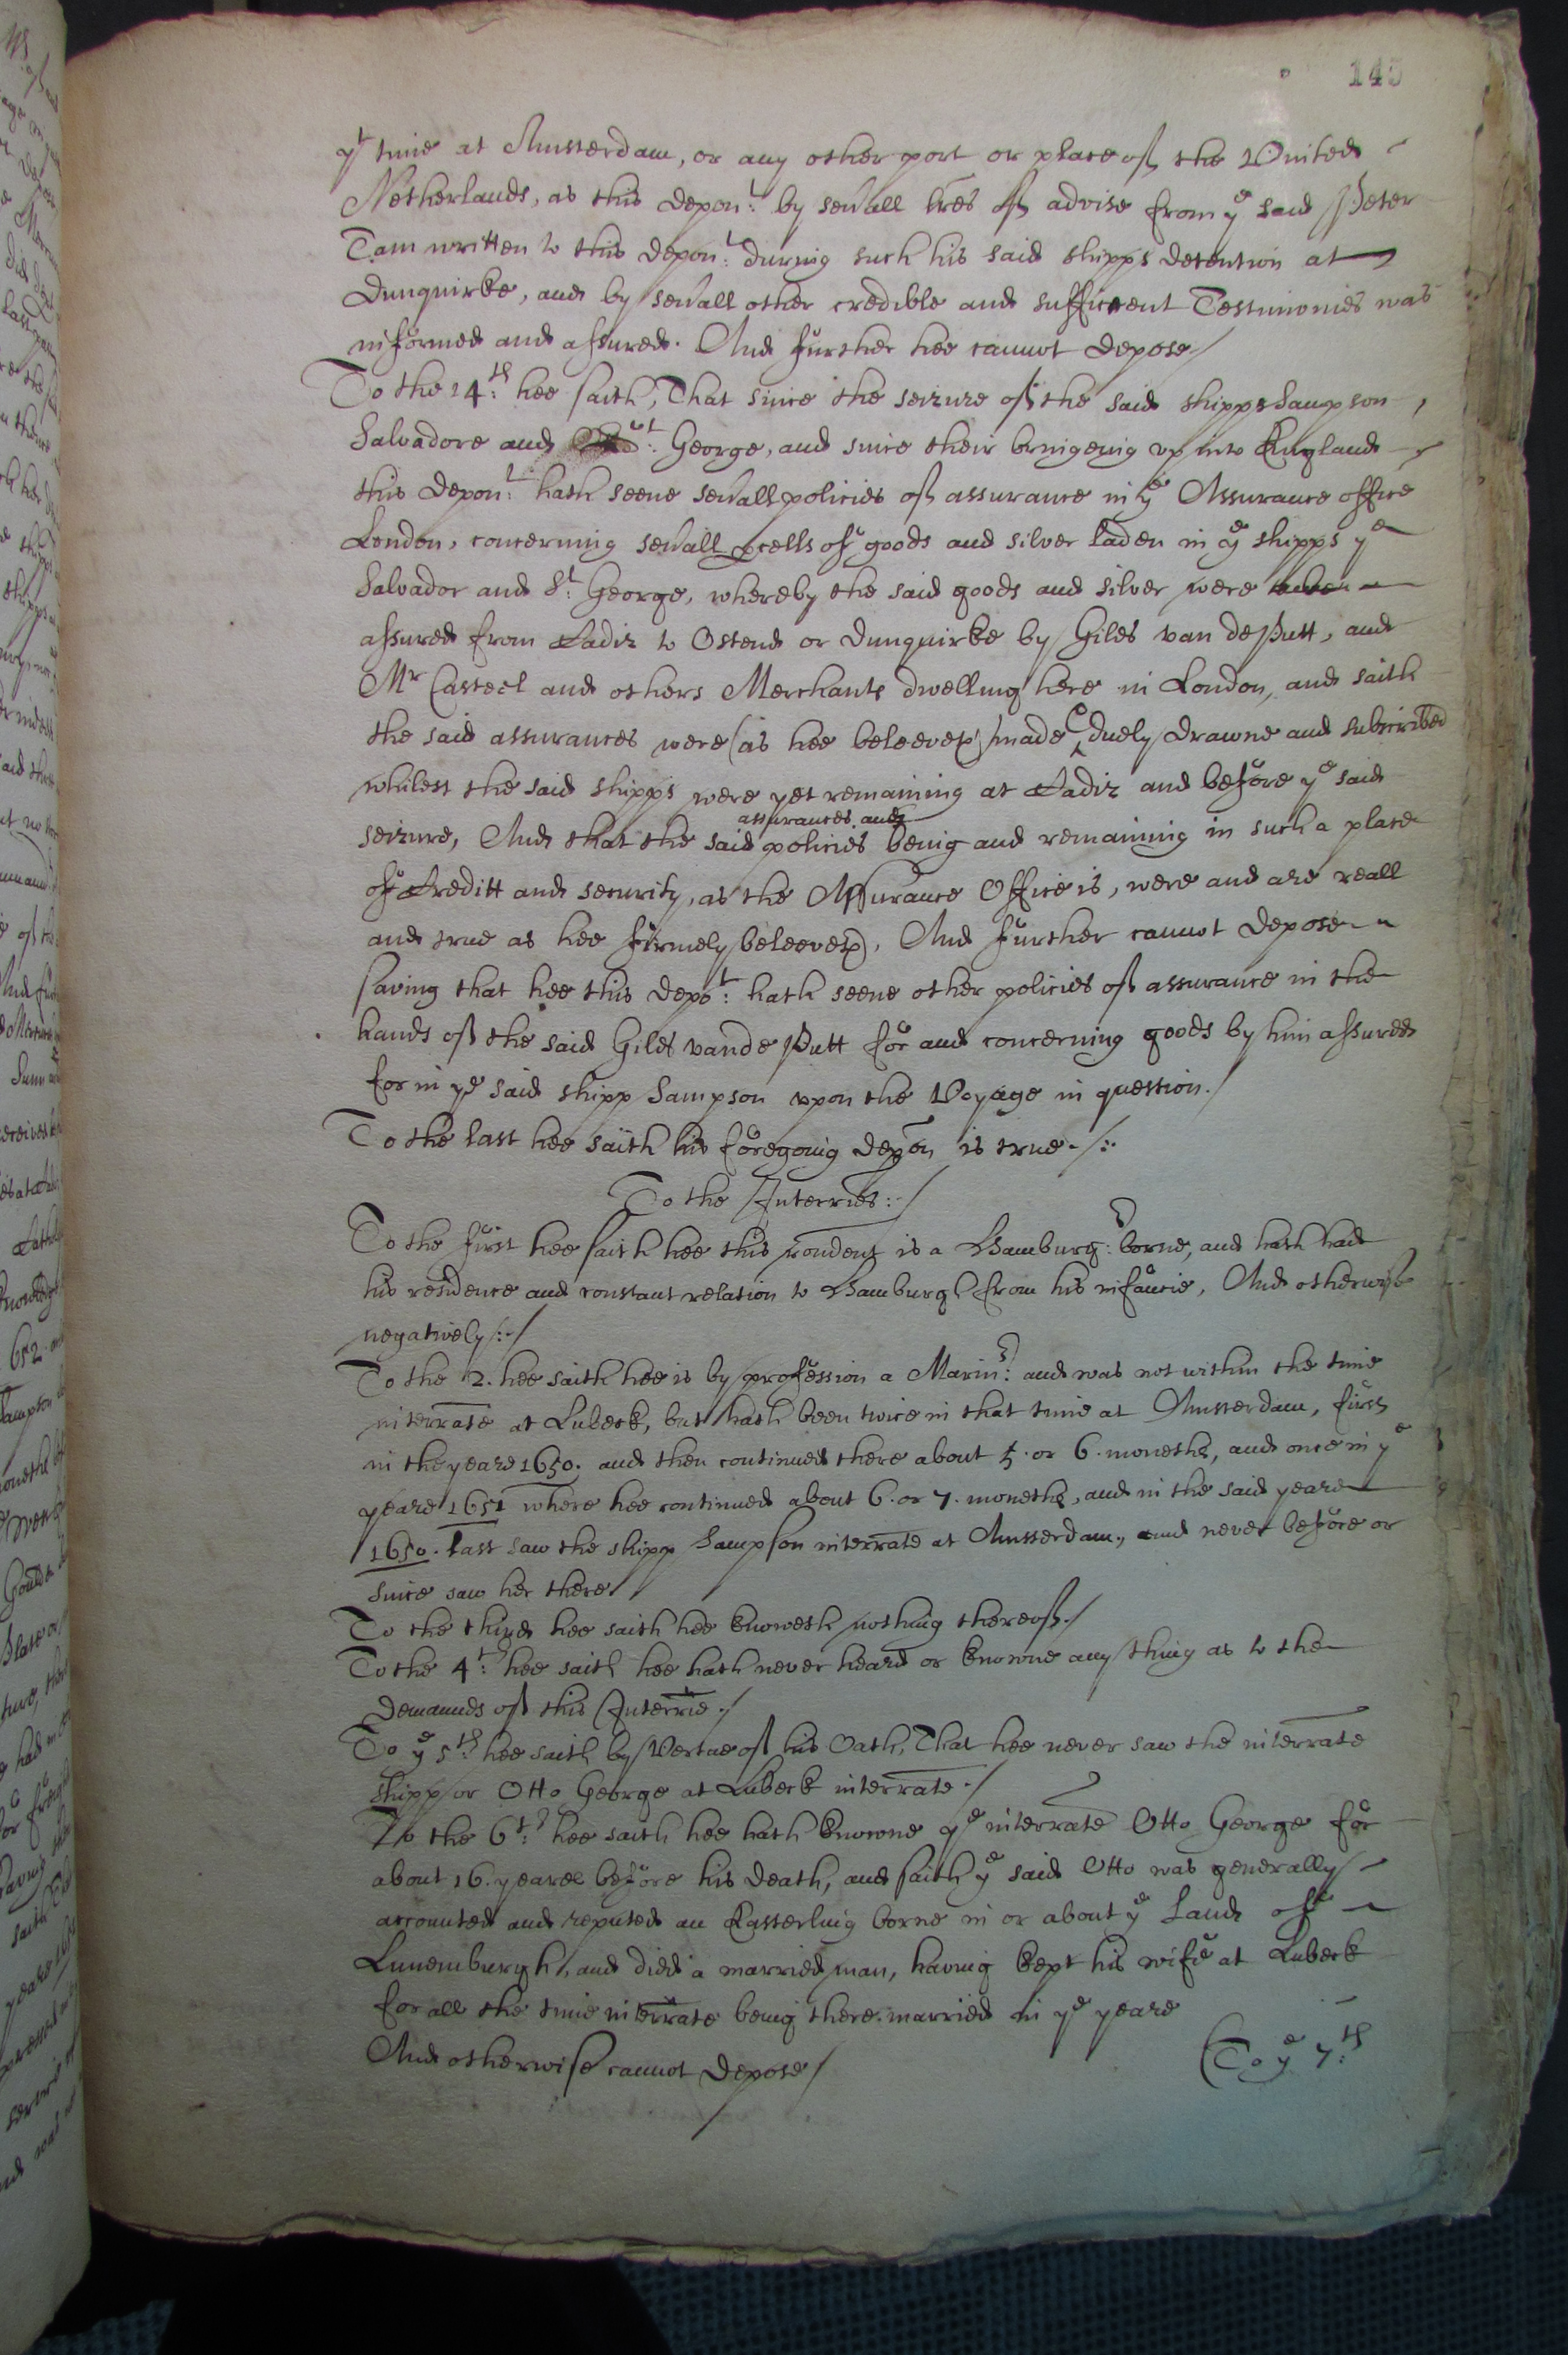 145
yt time at Amsterdam, or any other port or place of the United
Netherlands, as this depont: by seuall lres of advise from ye said Peter
Tam written to this depont: during such his said shipps detention at
Dunquirke, and by seuall other credible and sufficient Testimonies was
informed and assured. And further hee cannot depose/
To the 14th: hee saith, That since the seizure of the said shipps Sampson,
Salvadore and St: George, and since their bringeing vp into England
this depont: hath seene seuall policies of assurance in ye Assurance office
London, concerning seuall pcells of goods and silver laden in ye shipps ye
Salvador and St: George, whereby the said goods and silver were
assured from Cadiz to Ostend or Dunquirke by Giles van de Putt, and
Mr Casteel and others Merchants dwelling here in London, and saith
the said assurances were (as hee beleeveth) made & duely drawne and subscribed
whilest the said shipps were yet remaining at Cadiz and before ye said
assurances and
seizure, And that the said policies being and remaining in such a place
of Creditt and security, as the Assurance Office is, were and are reall
and true as hee firmely beleeveth, And further cannot depose
saving that hee this depot: hath seene other policies of assurance in the
hands of the said Giles vande Putt for and concerning goods by him assured
for in ye said shipp Sampson vpon the Voyage in question./
To the last hee saith his foregoing depon is true./:
To the Interries:/
To the first hee saith hee this rondent is a Hamburgr: borne, and hath had
his residence and constant relation to Hamburgh from his infancie, And otherwise
negatively/:/
To the 2. hee saith hee is by profession a Marinr: and was not within the time
interrate at Lubeck, but hath been twice in that time at Amsterdam, first
in the yeare 1650. and then continued there about 5. or 6. moneths, and once in ye
yeare 1651 where hee continued about 6. or 7. moneths, and in the said yeare
1650. last saw the shipp Sampson interrate at Amsterdam., and never before or
since saw her there
To the third hee saith hee knoweth nothing thereof./
To the 4th: hee saith hee hath never heard or knowne any thing as to the
demaunds of this Interrie./
To ye 5th: hee saith by Vertue of his Oath, That hee never saw the interrate
shipp or Otto George at Lubeck interrate./
To the 6th: hee saith hee hath knowne ye interrate Otto George for
about 16. yeares before his death, and saith ye said Otto was generally
accounted and reputed an Easterling borne in or about ye Land of
Lunemburgh, and died a married man, having kept his wife at Lubeck
for all the time interrate being there married in ye yeare
And otherwise cannot depose/
(To ye 7th: